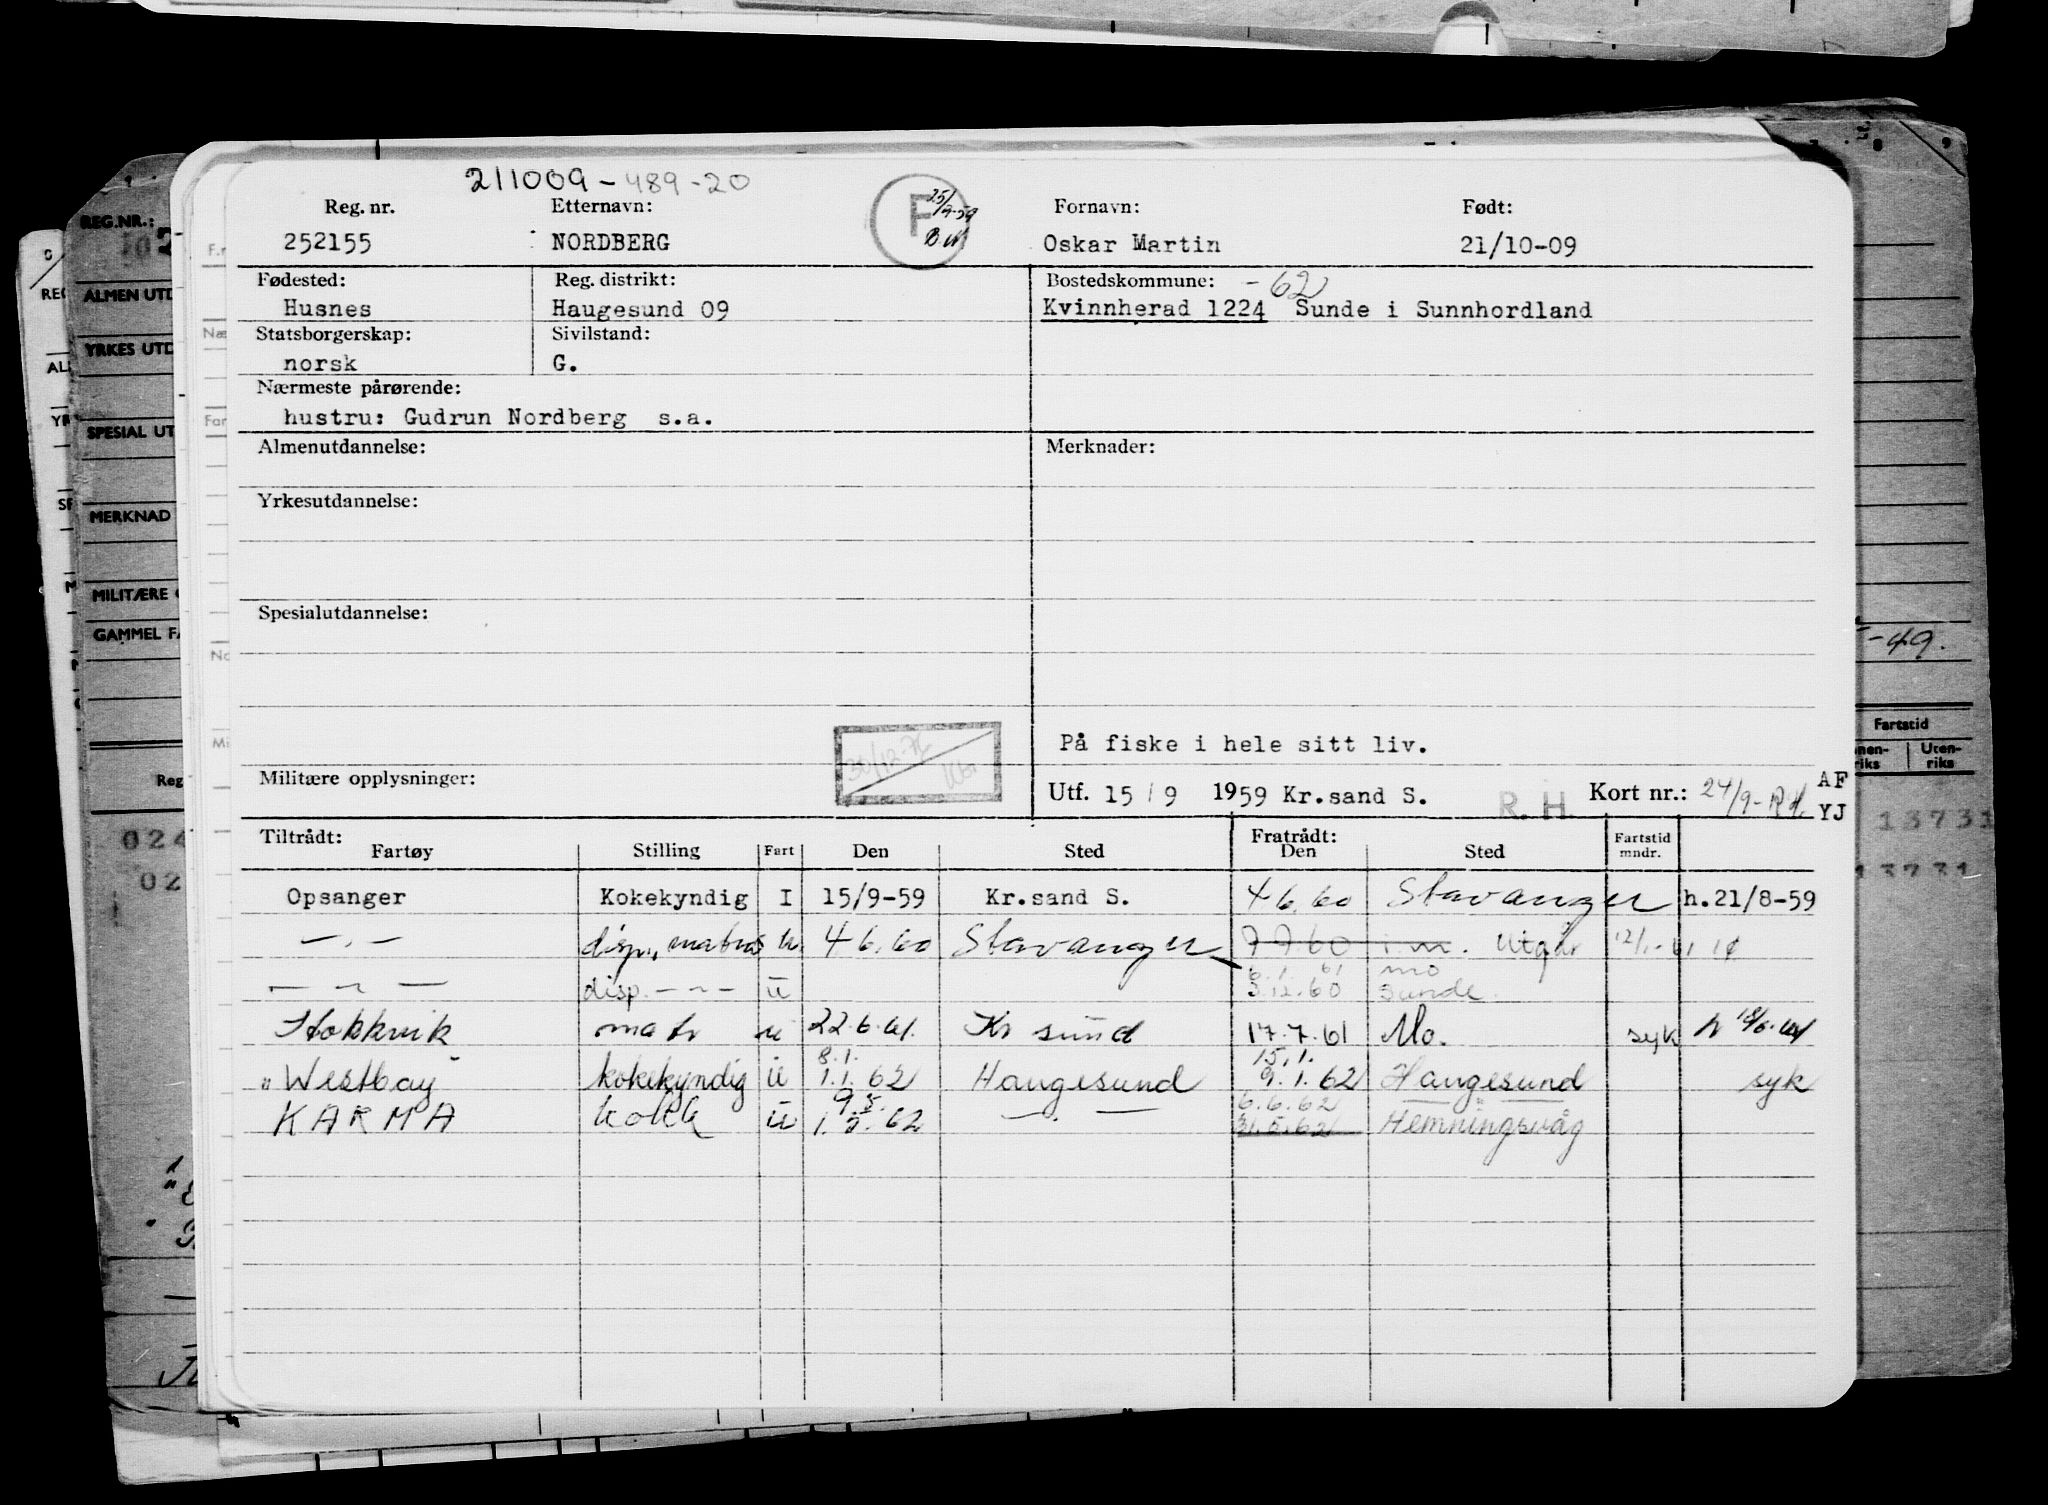 211009-489-20
Reg. nr. Etternavn: Fornavn: Født:
252155 NORDBERG F 25/9-59 Oskar Martin 21/10-09
Fødested: Reg. distrikt: Bostedskommune: -62
Husnes Haugesund 09 Kvinnherad 1224 Sunde i Sunnhordland
Statsborgerskap: Sivilstand:
norsk G.
Nærmeste pårørende:
hustru: Gudrun Nordberg s.a.
Almenutdannelse: Merknader:
Yrkesutdannelse:
Spesialutdannelse:
På fiske i hele sitt liv.
Militære opplysninger: Utf. 15/9 1959 Kr.sand S. R. H. Kort nr.: 24/9- AF
YJ
Tiltrådt: Fratrådt:
Fartøy Stilling Fart Den Sted Den Sted Fartstid mndr.
Opsanger Kokekyndig I 15/9-59 Kr.sand S. 4 6.60 Stavanger h.21/8-59
— . — disp. matros u. 4 6.60 Stavanger 7 7.60 i.m. Utgår 12/1-61
6.1.61 mo
— ~ — disp. — ~ — u 3.12.60 Sunde.
Stokkvik matr u 22.6.61. Kr sund 17.7.61 Mo. syk h
8.1. 15.1.
" Westbay kokekyndig u 1.1.62 Haugesund 9.1.62 Haugesund syk
9.5. 6.6.62 — " —
KARMA kokk u 1.5.62 — . — 31.5.62 Hemningsvåg
REG.NR.:
ALMEN UTD
YRKES UTD
SPESIAL UT
MERKNAD
MILITÆRE
GAMMEL FA
Reg
024
02
-49.
Fartstid
Uten-
riks
13731
13731